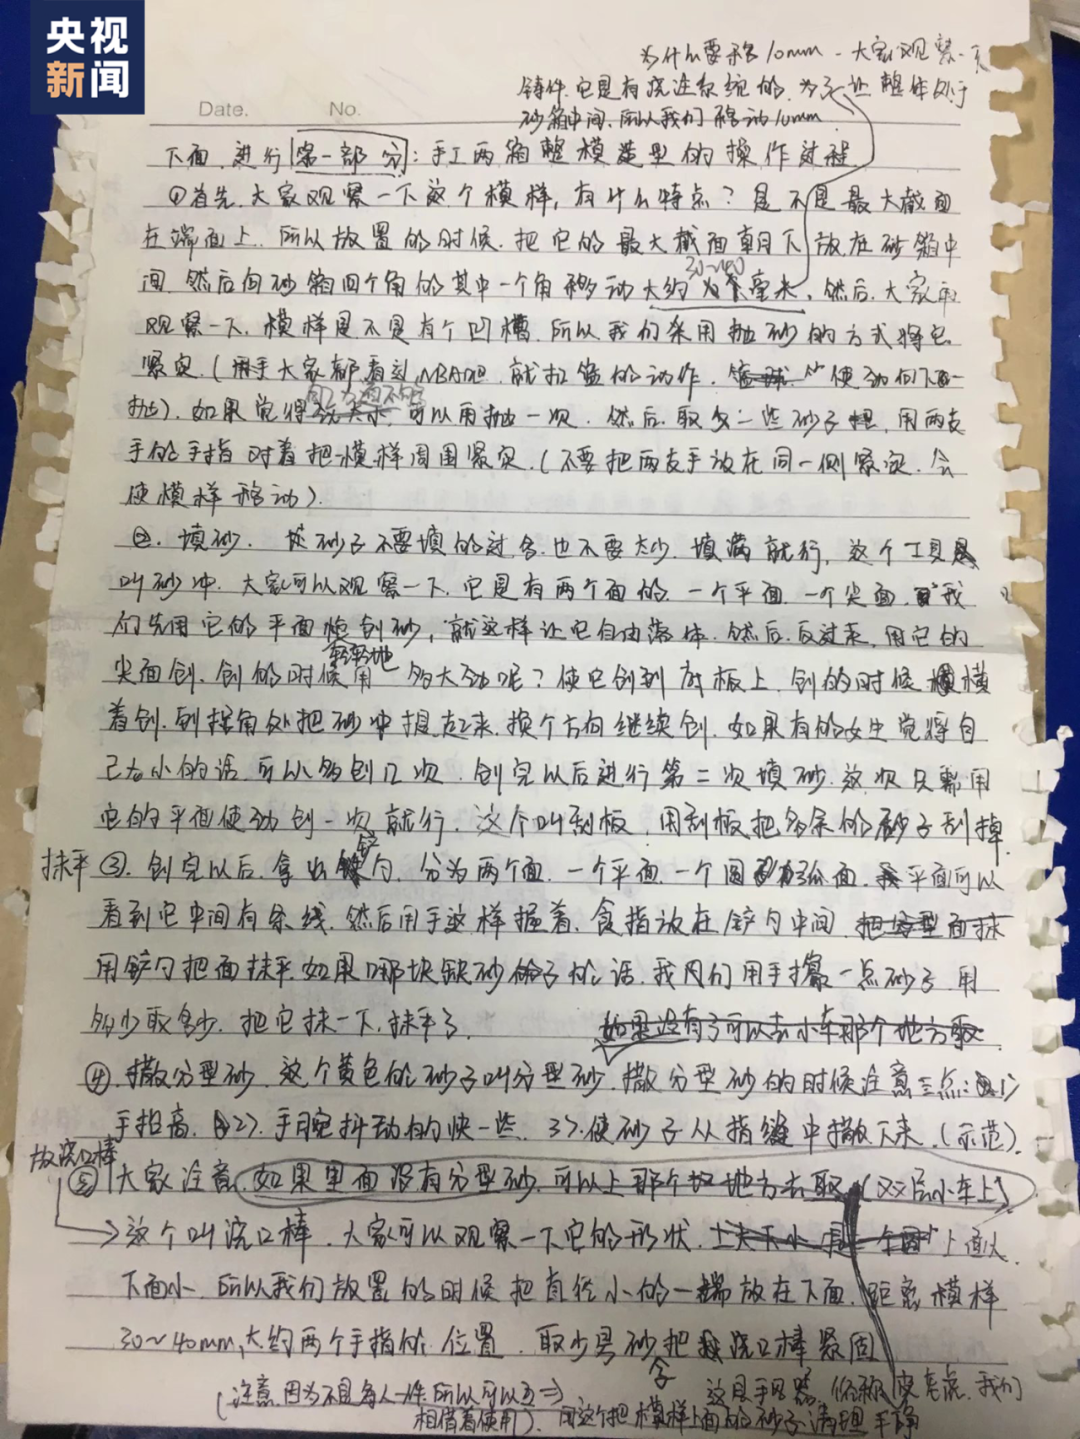 央视
新闻
为什么要移10mm - 大家观察一下
铸件.它是有浇注系统的.为了让整体处于
砂箱中间.所以我们移动10mm
Date. No.
下面.进行第一部分:手工两箱整模造型的操作过程
①首先.大家观察一下这个模样,有什么特点?是不是最大截面
在端面上.所以放置的时候.把它的最大截面朝下放在砂箱中
间.然后向砂箱四个角的其中一个角移动大约为毫米,然后.大家再
30~40
观察一下.模样是不是有个凹槽.所以我们采用抛砂的方式将它
紧实.(用手大家都看过NBA吧.就扣篮的动作.使劲向下一
抛).如果觉得可以再抛一次.然后.取一些砂子,用两支
手的手指对着把模样周围紧实.(不要把两支手放在同一侧紧实.会
使模样移动).
②.填砂.砂子不要填的过多.也不要太少.填满就行,这个工具
叫砂冲.大家可以观察一下.它是有两个面的.一个平面.一个尖面.我
们先用它的平面刨砂,就这样让它自由落体.然后.反过来,用它的
轻轻地
尖面刨.刨的时候用多大劲呢?使它刨到底板上.刨的时候横
着刨.到拐角处把砂冲提起来.换个方向继续刨.如果有的女生觉得自
己力小的话.可以多刨几次.刨完以后进行第二次填砂.这次只需用
它的平面使劲刨一次就行.这个叫刮板,用刮板把多余的砂子刮掉.
抹平 ③.刨完以后.拿出铲勺.分为两个面.一个平面.一个圆弧面.平面可以
看到它中间有条线.然后用手这样握着.食指放在铲勺中间.把分型面抹
用铲勺把面抹平.如果哪块缺砂子的话.我们用手撮一点砂子.用
多少取多少.把它抹一下.抹平了. 如果没有了可以去小车那个地方取
④.撒分型砂.这个黄色的砂子叫分型砂.撒分型砂的时候注意三点:1)
手抬高.2).手腕抖动的快一些.3).使砂子从指缝中撒下来.(示范).
放浇口棒
⑤大家注意.如果里面没有分型砂.可以上那个地方去取(双层小车上)
这个叫浇口棒.大家可以观察一下它的形状.上面大
下面小.所以我们放置的时候把直径小的一端放在下面.距离模样
30~40mm,大约两个手指的位置.取少量砂把浇口棒紧固
(注意.因为不是每人一件.所以可以互相借着使用).
这是手风器.俗称皮老虎.我们
用这个把模样上面的砂子清理干净